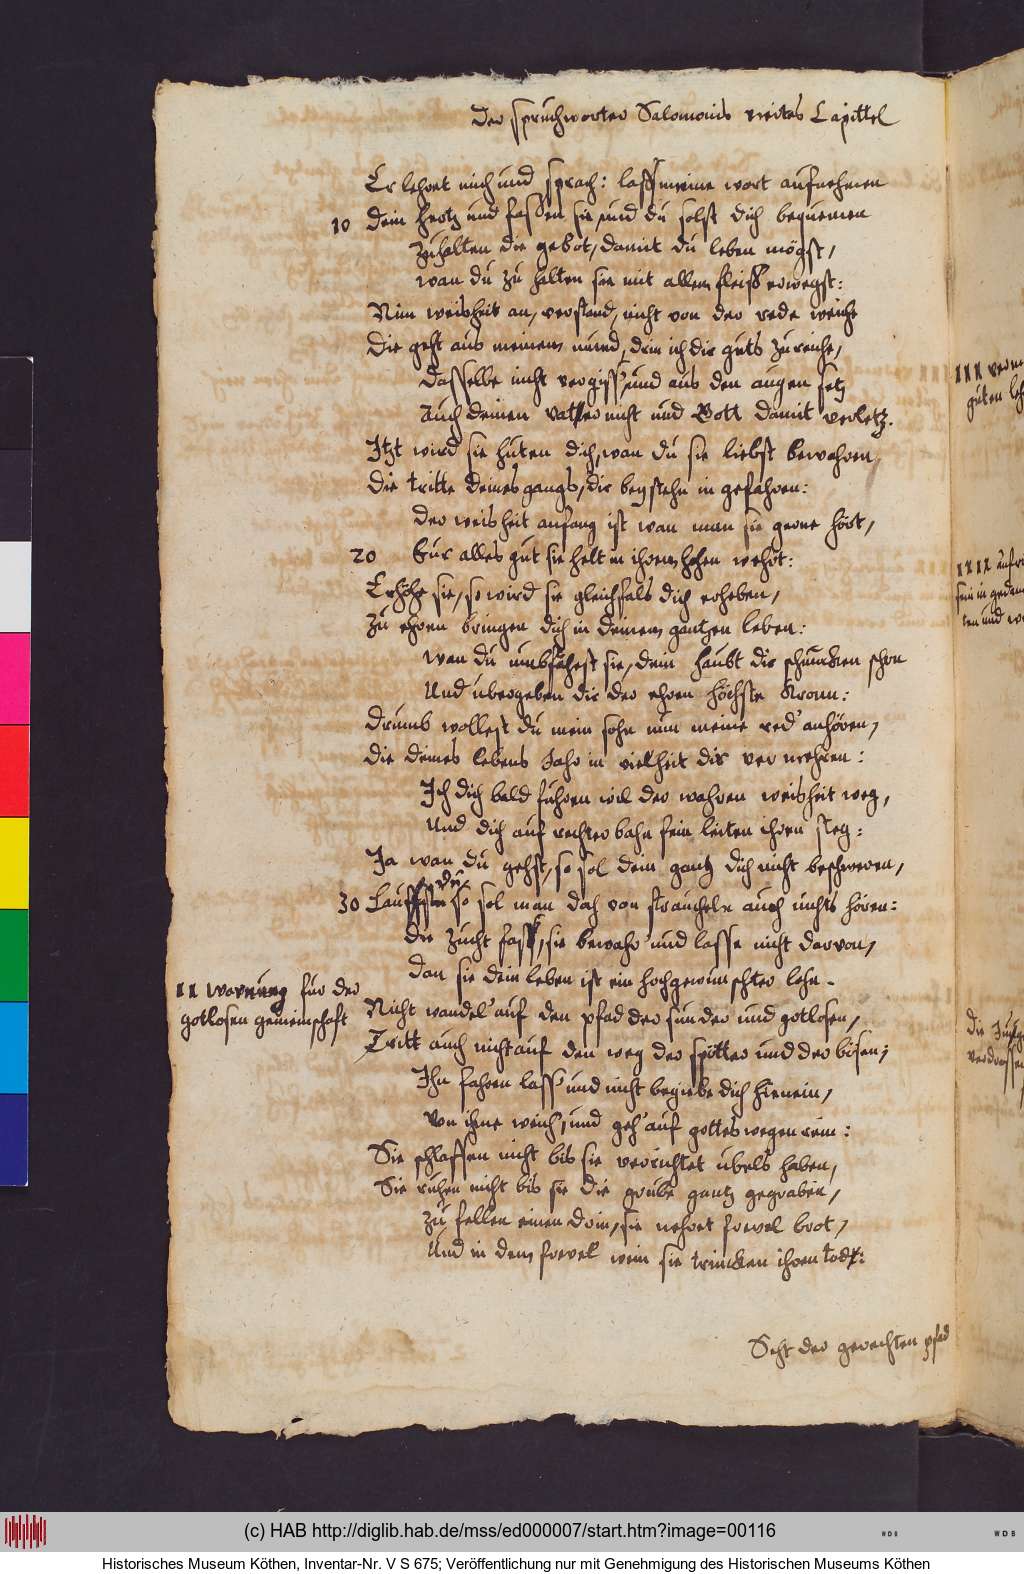 Der spruchworter Salomonis viertes Capittel
Er lehret mich und sprach: lass meine wort aufnehmen
10 Dein hertz und fassen sie, und du solst dich bequemen
Zuhalten die gebot, damit du leben mögst,
wan du zu halten sie mit allem fleiss erwegst:
Nim weisheit an, verstand, nicht von der rede weiche
Die geht aus meinem mund, drin ich dir guts zureiche,
Dasselbe nicht vergiss, und aus den augen setz
Auch deinen vatter nicht und Gott damit verletz.
Itzt wird sie huten dich, wan du sie liebst bewahren,
Die tritte deines gangs, dir beystehn in gefahren:
Der weisheit anfang ist wan man sie gerne hört,
20 Fur alles gut sie helt in ihrem hohen wehrt:
Erhöhe sie, so wird sie gleichfals dich erheben,
Zu ehren bringen dich in deinem gantzen leben:
wan du umbfähest sie, dein haubt dir schmucken schon
Und ubergeben dir der ehren höchste Kronn:
Drumb wollest du mein sohn nun meine red' anhören,
Die deines lebens Jahr in vielheit dir vermehren:
Ich dich bald fuhren wil der wahren weisheit weg,
Und dich auf rechter bahn fein leiten ihren steg:
Ja wan du gehst, so sol dein gang dich nicht beschweren,
du
30 Lauffstu so sol man doch von straucheln auch nichts hören:
die zucht fass, sie bewahr' und lasse nicht darvon,
dan sie dein leben ist ein hochgewunschter lohn.
II Warnung fur der
gotlosen gemeinschaft
Nicht wandel' auf den pfad der sunder und gotlosen,
Tritt auch nicht auf den weg der spötter und der bösen;
Ihn fahren lass' und nicht begiebe dich hienein,
Von ihme weich', und geh' auf gottes wegen rein:
Sie schlaffen nicht bis sie verrichtet ubels haben,
Sie ruhen nicht bis sie die grube gantz gegraben,
Zu fellen einen drin, sie nehret frevel brot,
Und in dem frevel wein sie trincken ihren todt:
Seht der gerechten pfad
III
guten
IIII
sein in
ten und
die
verdrossen
(c) HAB http://diglib.hab.de/mss/ed000007/start.htm?image=00116
Historisches Museum Köthen, Inventar-Nr. V S 675; Veröffentlichung nur mit Genehmigung des Historischen Museums Köthen